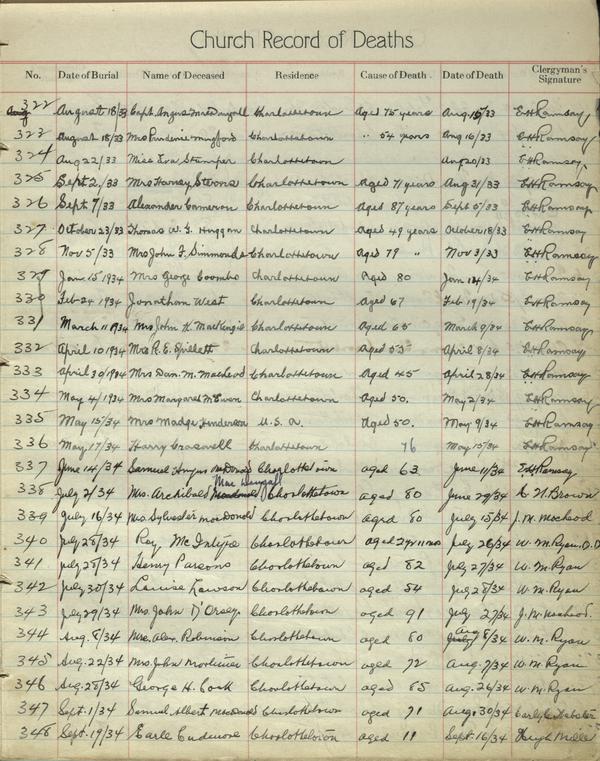 Church Record of Deaths
No. Date of Burial Name of Deceased Residence Cause of Death Date of Death Clergyman's Signature
322 August 18/33 Capt. Angus MacDougall Charlottetown Aged 75 years Aug. 15/33 E H Ramsay
323 August 18/33 Mrs Prudence Mugford Charlottetown " 54 years Aug 16/33 E H Ramsay
324 Aug 22/33 Miss Eva Stamper Charlottetown Aug 20/33 E H Ramsay
325 Sept 2/33 Mrs Harvey Stevens Charlottetown Aged 71 years Aug 31/33 E H Ramsay
326 Sept 7/33 Alexander Cameron Charlottetown Aged 87 years Sept 5/33 E H Ramsay
327 October 23/33 Thomas W. G. Charlottetown Aged 49 years October 18/33 E H Ramsay
328 Nov 5/33 Mrs John F. Simmonds Charlottetown Aged 79 " Nov 3/33 E H Ramsay
329 Jan 15 1934 Mrs George Coombs Charlottetown Aged 80 Jan 14/34 E H Ramsay
330 Feb 24 1934 Jonathan West Charlottetown Aged 67 Feb 19/34 E H Ramsay
331 March 11 1934 Mrs John K. MacKenzie Charlottetown Aged 65 March 9/34 E H Ramsay
332 April 10 1934 Mrs R. E. Spillett Charlottetown Aged 53 April 8/34 E H Ramsay
333 April 30/1934 Mrs Dan. M. MacLeod Charlottetown Aged 45 April 28/34 E H Ramsay
334 May 4/1934 Mrs Margaret McEwen Charlottetown Aged 50. May 2/34 E H Ramsay
335 May 15/34 Mrs Madge Henderson U.S.A. Aged 50. May 9/34 E H Ramsay
336 May 17/34 Harry Charlottetown 76 May 15/34 E H Ramsay
337 June 14/34 Samuel Angus McDonald Charlottetown aged 63 June 11/34 E H Ramsay
338 July 2/34 Mrs. Archibald MacDougall Charlottetown aged 80 June 29/34 C. H. Brown
339 July 16/34 Mrs. Sylvester MacDonald Charlottetown aged 80 July 15/34 J. M. MacLeod
340 July 28/34 Roy McIntyre Charlottetown aged July 26/34 W. M. Ryan, D.D
341 July 28/34 Henry Parsons Charlottetown aged 82 July 27/34 W. M. Ryan
342 July 30/34 Louise Lawson Charlottetown aged 84 July 28/34 W. M. Ryan
343 July 29/34 Mrs. John D'Orsay Charlottetown aged 91 July 27/34 J. M. MacLeod.
344 Aug. 8/34 Mrs. Alex. Robinson Charlottetown aged 80 Aug 8/34 W. M. Ryan
345 Aug. 22/34 Mrs. John Mortimer Charlottetown aged 72 Aug. 7/34 W. M. Ryan
346 Aug. 28/34 George H. Cook Charlottetown aged 85 Aug. 26/34 W. M. Ryan
347 Sept. 1/34 Samuel Albert MacDonald Charlottetown aged 71 Aug. 30/34 Carlyle Webster
348 Sept. 19/34 Earle Cudmore Charlottetown aged 11 Sept. 16/34 Hugh Miller